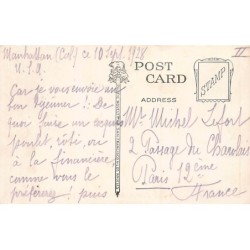 Manhattan (Cal) ce 10 Sept. 1928
U.S.A.
III
POST CARD
STAMP
ADDRESS
Car je vous envoie un
bon déjeuner! De
quoi faire un
poulet, rôti, ou
à la financière,
comme vous le
préférez! puis
Mr Michel Lefort
2 Passage du Charolais
Paris 12ème
France